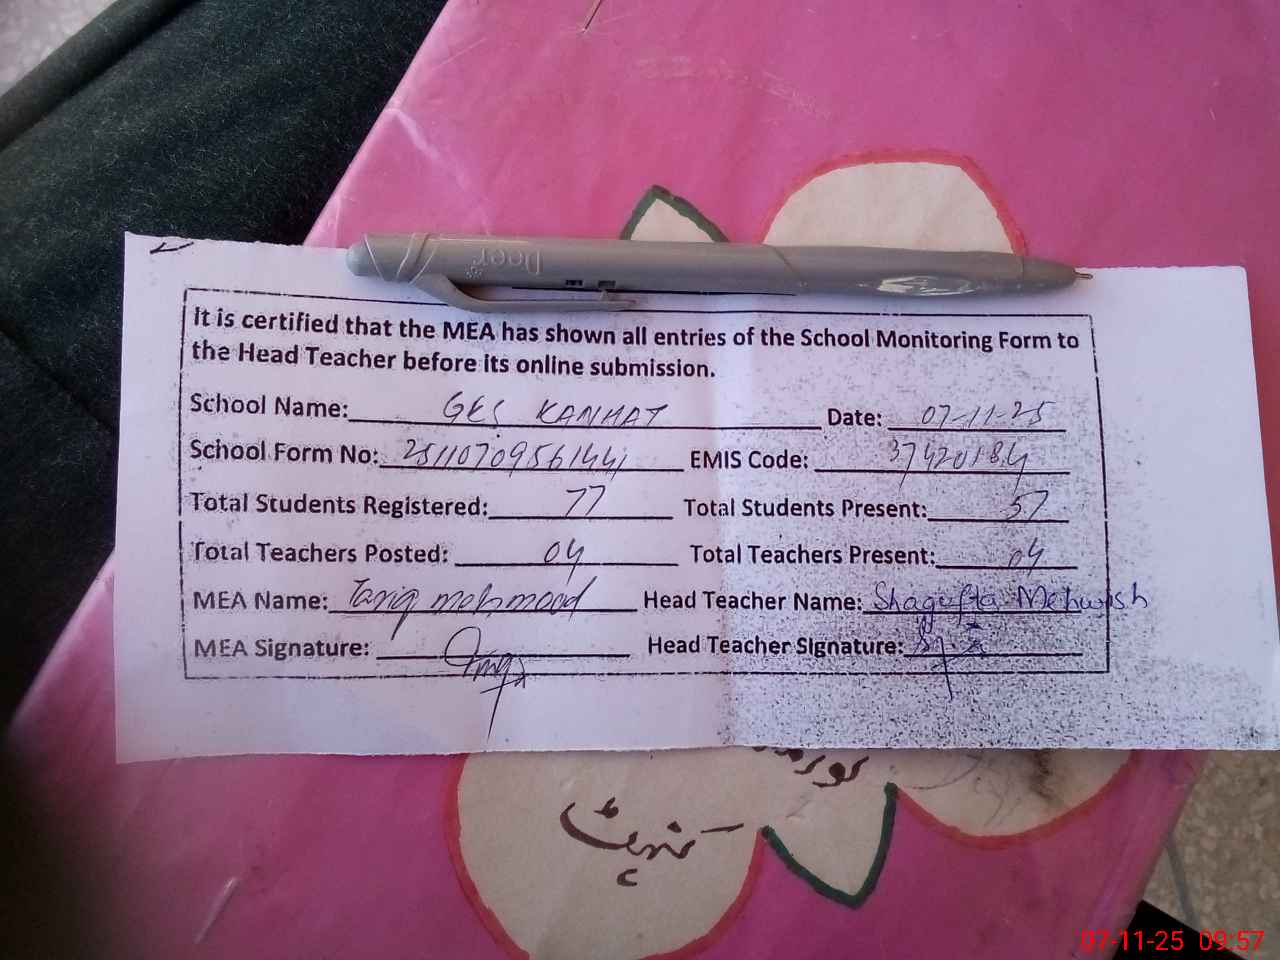 Deer
It is certified that the MEA has shown all entries of the School Monitoring Form to
the Head Teacher before its online submission.
School Name: GES KANHAT Date: 07-11-25
School Form No: 25110709561441 EMIS Code: 37420184
Total Students Registered: 77 Total Students Present: 57
Total Teachers Posted: 04 Total Teachers Present: 04
MEA Name: Tariq mehmood Head Teacher Name: Shagufta Mehwish
MEA Signature: Head Teacher Signature:
07-11-25 09:57